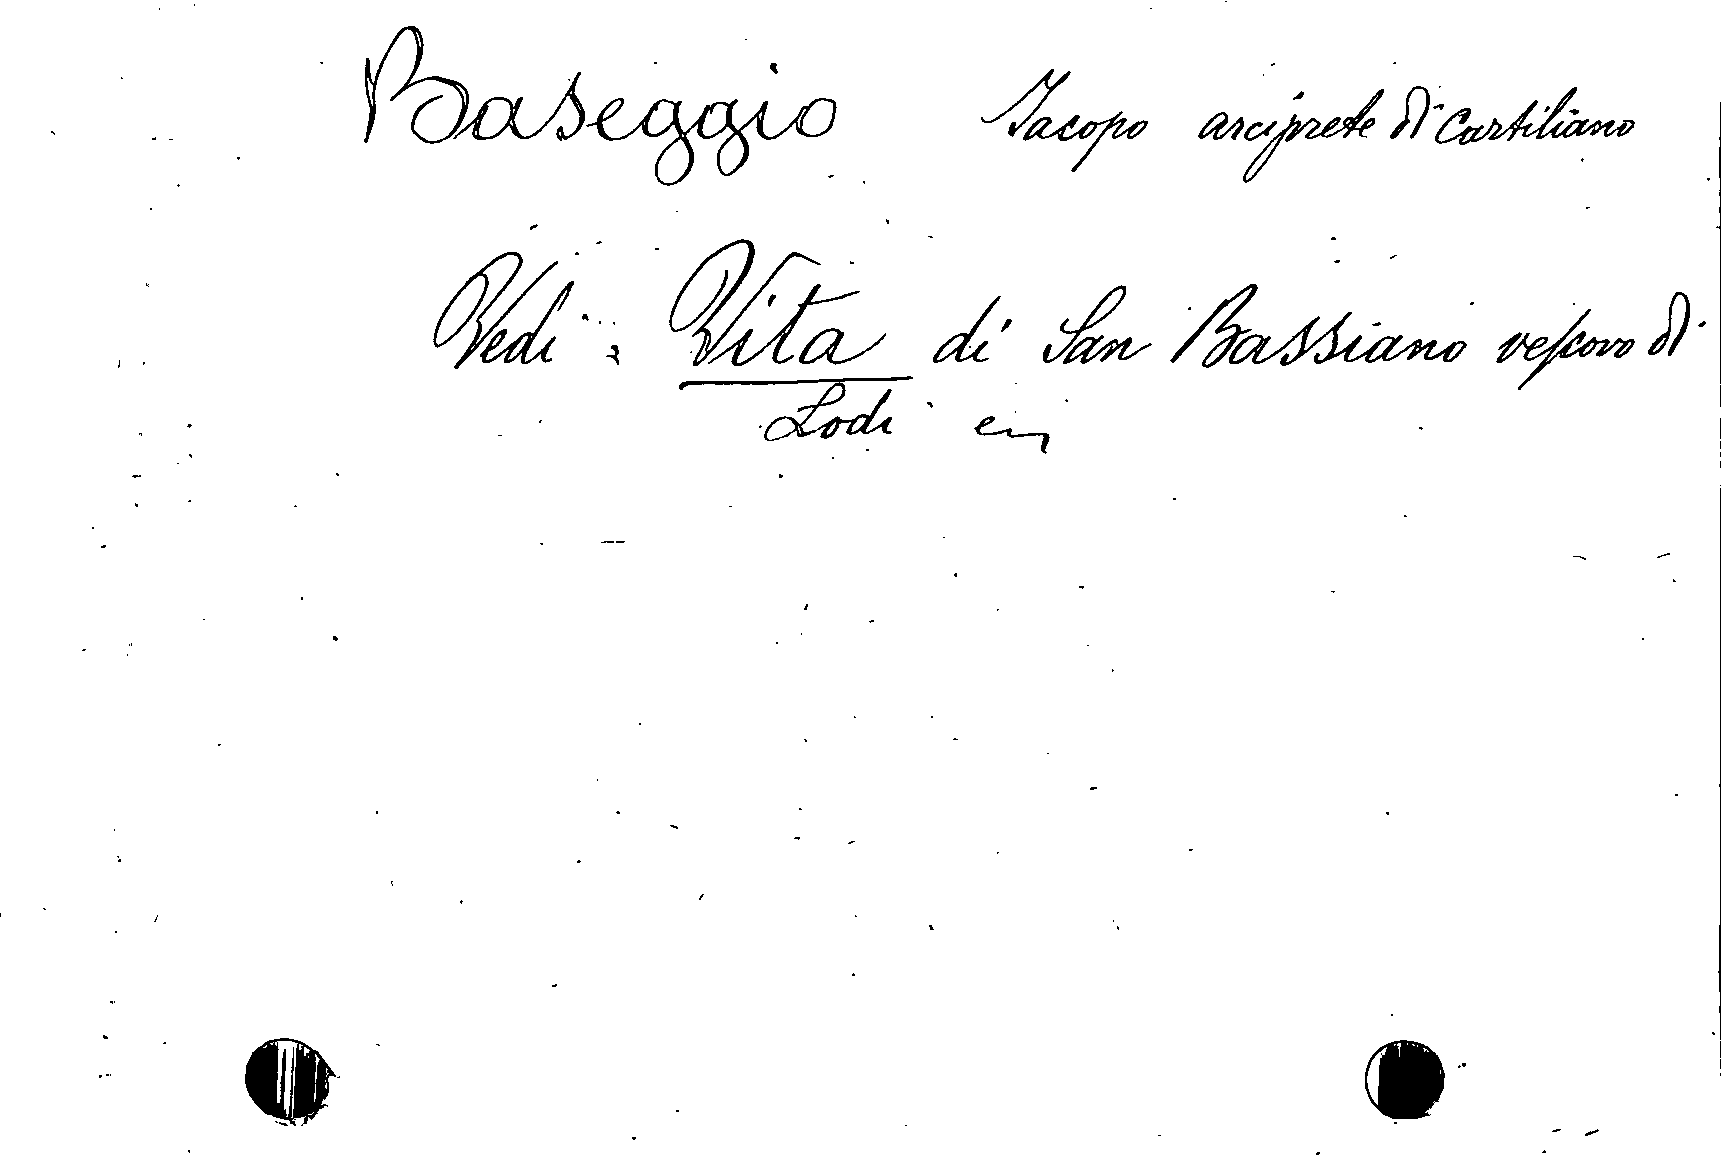 Baseggio Jacopo arciprete di Cartiliano
Vedi: Vita di San Bassiano vescovo di
Lodi